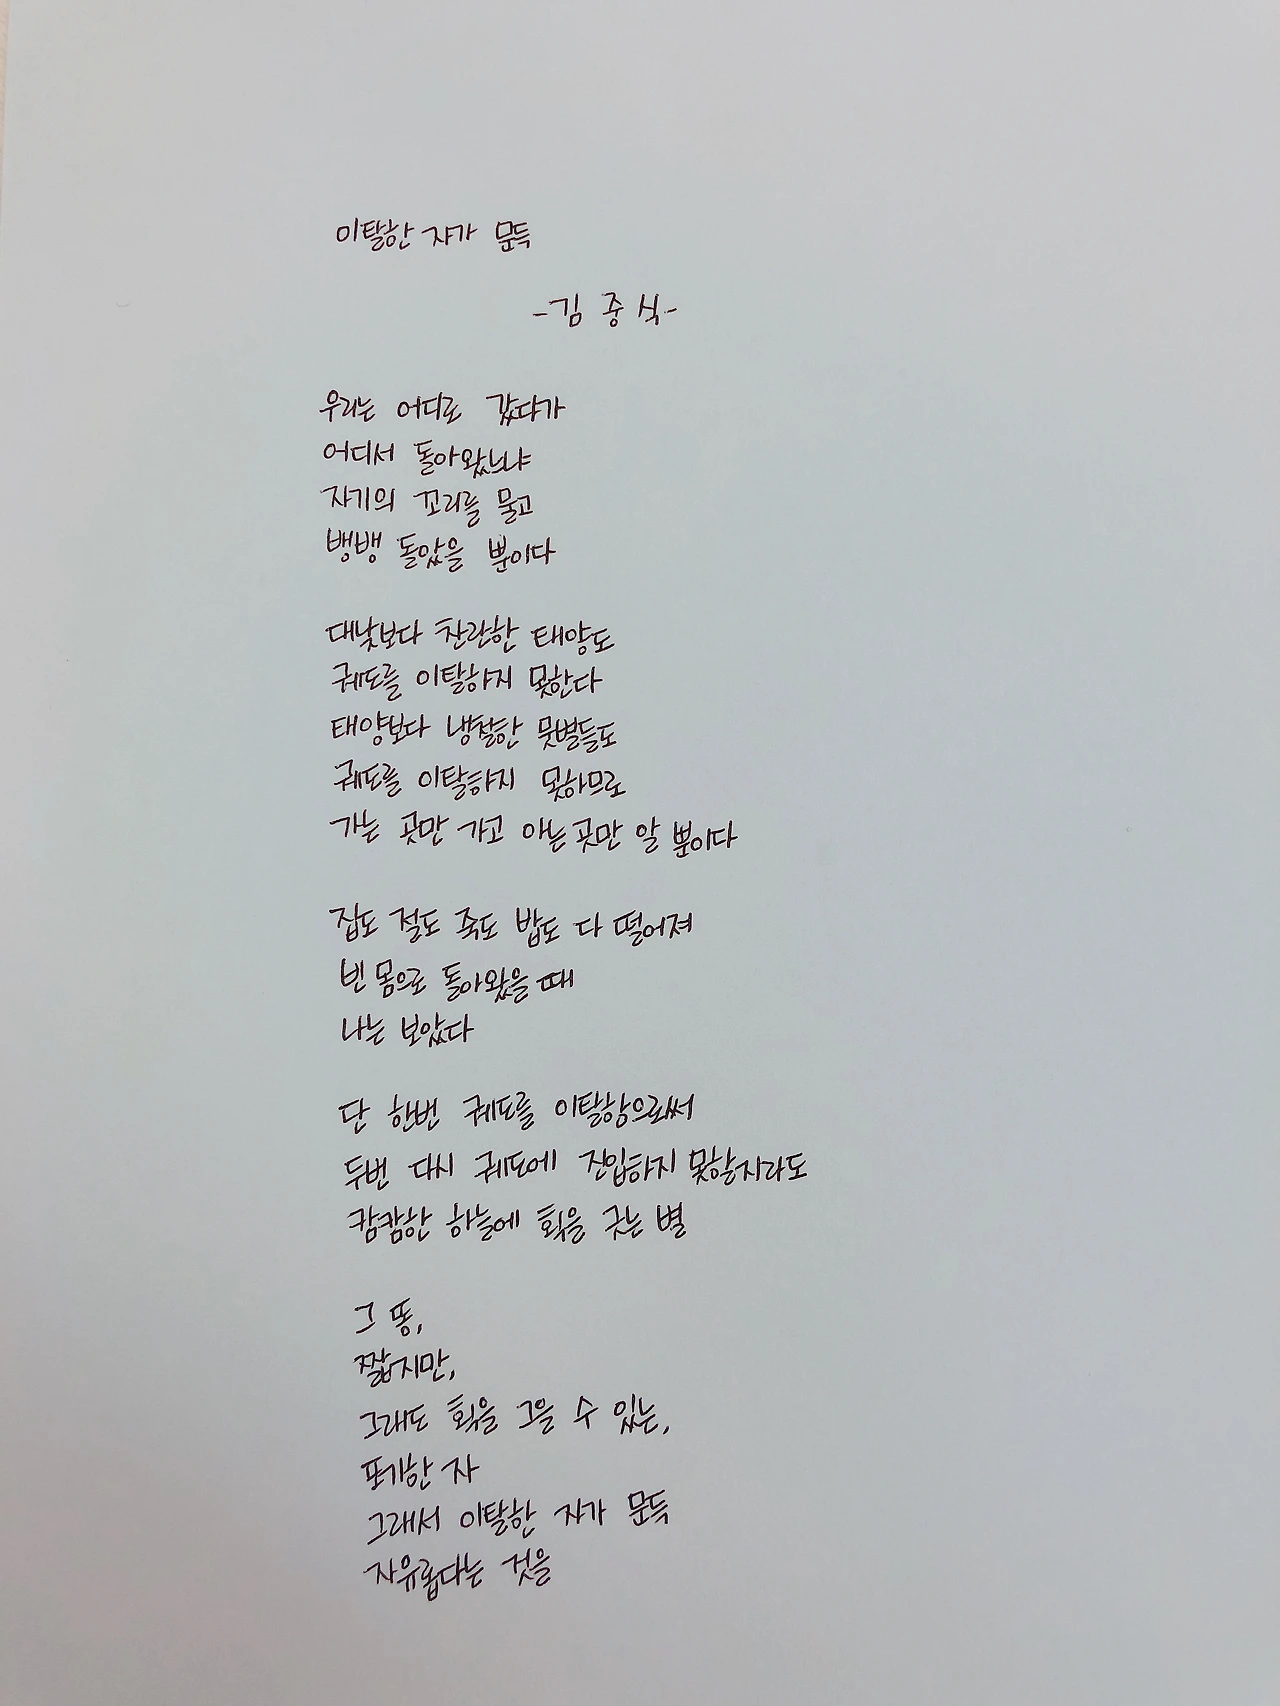 이탈한 자가 문득
-김중식-
우리는 어디로 갔다가
어디서 돌아왔느냐
자기의 꼬리를 물고
뱅뱅 돌았을 뿐이다
대낮보다 찬란한 태양도
궤도를 이탈하지 못한다
태양보다 냉철한 뭇별들도
궤도를 이탈하지 못하므로
가는 곳만 가고 아는 곳만 알 뿐이다
집도 절도 죽도 밥도 다 떨어져
빈 몸으로 돌아왔을 때
나는 보았다
단 한번 궤도를 이탈함으로써
두번 다시 궤도에 진입하지 못할지라도
캄캄한 하늘에 획을 긋는 별
그 똥,
짧지만,
그래도 획을 그을 수 있는,
포기한 자
그래서 이탈한 자가 문득
자유롭다는 것을